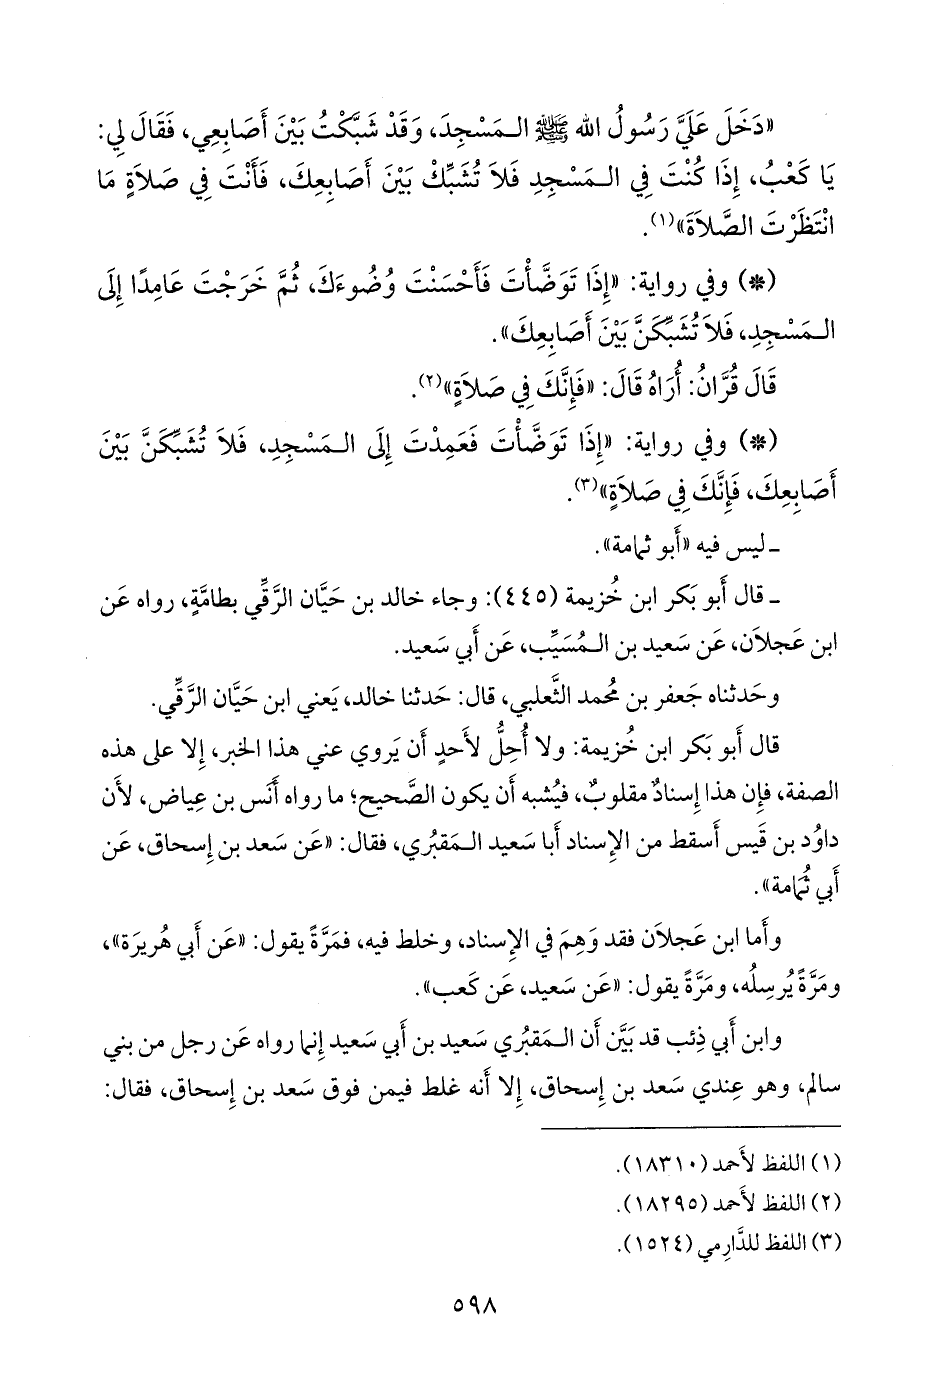 «دَخَلَ عَلَيَّ رَسُولُ الله ﷺ الـمَسْجِدَ، وَقَدْ شَبَّكْتُ بَيْنَ أَصَابِعِي، فَقَالَ لِي:
يَا كَعْبُ، إِذَا كُنْتَ فِي الـمَسْجِدِ فَلاَ تُشَبِّكْ بَيْنَ أَصَابِعِكَ، فَأَنْتَ فِي صَلاَةٍ مَا
انْتَظَرْتَ الصَّلاَةَ»(١).
(*) وفي رواية: «إِذَا تَوَضَّأْتَ فَأَحْسَنْتَ وُضُوءَكَ، ثُمَّ خَرَجْتَ عَامِدًا إِلَى
الـمَسْجِدِ، فَلاَ تُشَبِّكَنَّ بَيْنَ أَصَابِعِكَ».
قَالَ قُرَّانُ: أُرَاهُ قَالَ: «فَإِنَّكَ فِي صَلاَةٍ»(٢).
(*) وفي رواية: «إِذَا تَوَضَّأْتَ فَعَمِدْتَ إِلَى الـمَسْجِدِ، فَلاَ تُشَبِّكَنَّ بَيْنَ
أَصَابِعِكَ، فَإِنَّكَ فِي صَلاَةٍ»(٣).
ـ ليس فيه «أَبو ثمامة».
ـ قال أَبو بَكر ابن خُزيمة (٤٤٥): وجاء خالد بن حَيَّان الرَّقِّي بطامَّةٍ، رواه عَن
ابن عَجلاَن، عَن سَعيد بن الـمُسَيِّب، عَن أَبي سَعيد.
وحَدثناه جَعفر بن مُحمد الثَّعلبي، قال: حَدثنا خالد، يَعني ابن حَيَّان الرَّقِّي.
قال أَبو بَكر ابن خُزيمة: ولا أُحِلُّ لأَحدٍ أَن يَروي عني هذا الخبر، إِلا على هذه
الصفة، فإِن هذا إِسنادٌ مقلوبٌ، فيُشبه أَن يكون الصَّحيح؛ ما رواه أَنَس بن عِياض، لأَن
داوُد بن قَيس أَسقط من الإِسناد أَبا سَعيد الـمَقبُري، فقال: «عَن سَعد بن إِسحاق، عَن
أَبي ثُمامة».
وأَما ابن عَجلاَن فقد وَهِمَ في الإِسناد، وخلط فيه، فمَرَّةً يقول: «عَن أَبي هُريرَة»،
ومَرَّةً يُرسِلُه، ومَرَّةً يقول: «عَن سَعيد، عَن كَعب».
وابن أَبي ذِئب قد بَيَّن أَن الـمَقبُري سَعيد بن أَبي سَعيد إِنما رواه عَن رجل من بني
سالم، وهو عِندي سَعد بن إِسحاق، إِلا أَنه غلط فيمن فوق سَعد بن إِسحاق، فقال:
(١) اللفظ لأَحمد (١٨٣١٠).
(٢) اللفظ لأَحمد (١٨٢٩٥).
(٣) اللفظ للدَّارِمي (١٥٢٤).
٥٩٨